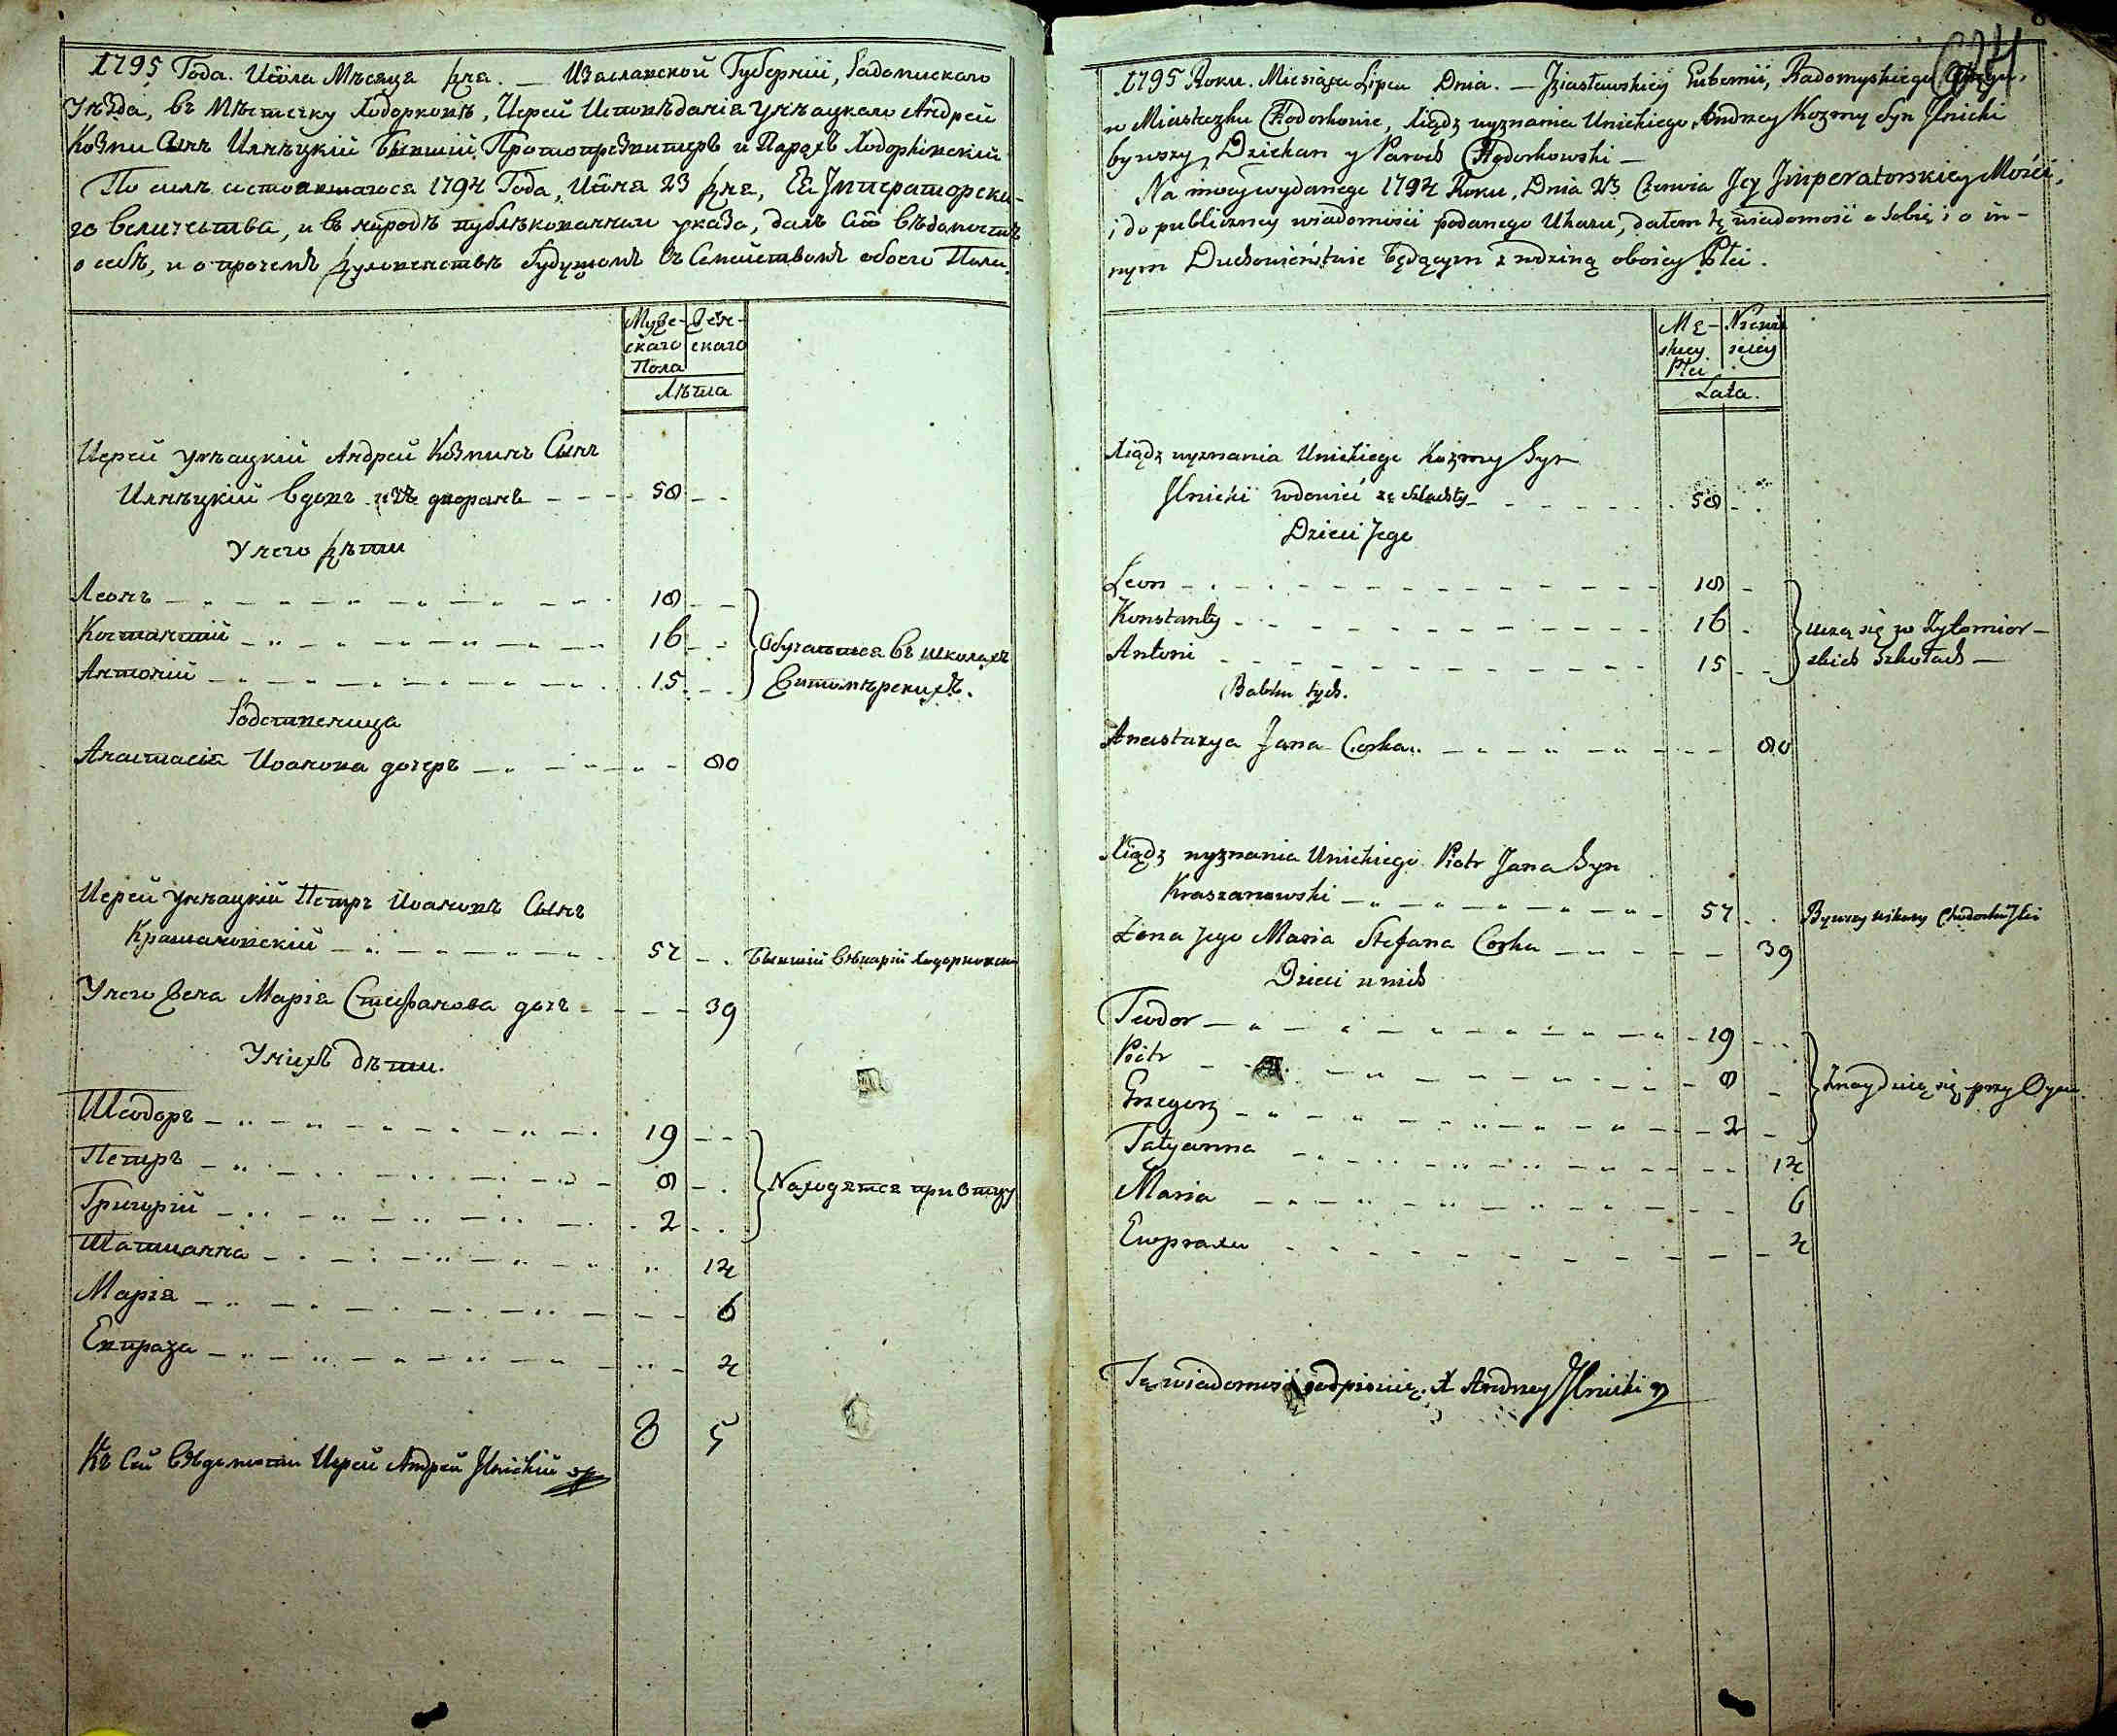 1795 Года. Июла Мѣсяца дня. — Изаславской Губерніи, Радомискаго
Уѣзда, въ Мѣстечку Ходорковѣ, Иерей Исповѣданія Унѣацкаго Андрей
Козми Сынъ Илнѣцкій Бывшій Протопрезвитеръ и Парохъ Ходорковскій
По силѣ состоявшагося 1794 Года, Июня 23 дня, Ея Императорска-
го величества, и въ народъ публѣкованнаго указа, далъ сию вѣдомость
о себѣ, и о прочемъ духовенствѣ будущомъ съ Семействомъ обоего Пола.
Муже- Жен-
скаго скаго
Пола
Лѣта
Иерей унѣацкій Андрей Козминъ Сынъ
Илнѣцкій вдовъ изъ дворанъ 58
У него дѣти
Леонъ 18
Костантій 16 Обучаются въ школахъ
Антоній 15 Житомѣрскихъ.
Родственица
Анастасія Иоанова дочеръ 80
Иерей унѣацкій Петръ Иоановъ Сынъ
Крашановскій 54 Бывшій Вѣкарій Ходорковскій
У него жена Марія Стефанова дочъ 39
У нихъ дѣти.
Шеодоръ 19
Петръ 8 Находятся при Отцу
Григорій 2
Татианна 14
Марія 6
Евпраха 4
8 5
Къ Сей вѣдомости Иерей Андрей Ilnickiй
1795 Roku. Miesiąca Lipca Dnia. — Jziasławskiey Gubernii, Radomyskiego
w Miasteczku Chodorkowie, Xiądz wyznania Unickiego Andrzey Kozmy Syn Jlnicki
bywszy Dziekan y Paroch Chodorkowski —
Na mocy wydanego 1794 Roku, Dnia 23 Czerwca Jey Jmperatorskiey Mości,
i do publiczney wiadomości podanego Ukazu, dałem tę wiadomość o sobie i o in-
nym Duchowieństwie będącym z rodziną oboiey Płci.
Mę- Niewie
skiey sciey
Płci
Lata.
Xiądz wyznania Unickiego Kozmy Syn
Jlnicki wdowiec ze szlachty 58
Dzieci Jego
Leon 18
Konstanty 16 uczą się w Żytomior-
Antoni 15 skich szkołach —
Babka tych.
Anastazya Jana Corka 80
Xiądz wyznania Unickiego Piotr Jana Syn
Kraszanowski 54 Bywszy wikary Chodorkowski
Żona Jego Maria Stefana Corka 39
Dzieci u nich
Teodor 19
Piotr 8 Znayduią się przy Oycu.
Grzegorz 2
Tatyanna 14
Maria 6
Ewpraxa 4
Tę wiadomość podpisuię X Andrzey Jlnicki